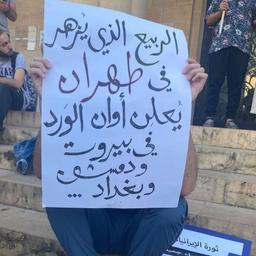 الربيع الذي يزهر
في طهران
يُعلن أوان الورد
في بيروت
ودمشق
وبغداد...
ثورة الإيرانيا